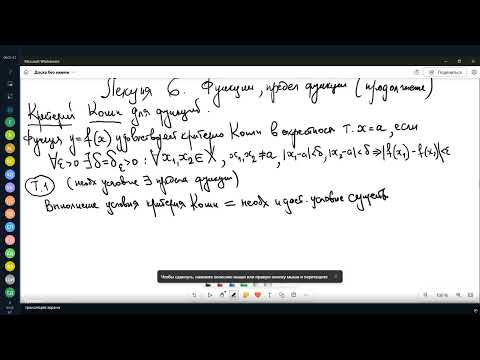 Microsoft Whiteboard
Доска без имени
Поделиться
Лекция 6. Функции, предел функции (продолжение)
Критерий Коши для функций.
Функция y=f(x) удовлетворяет критерию Коши в окрестности т. x=a, если
∀ε>0 ∃δ=δ_ε>0 : ∀x₁,x₂∈X, x₁,x₂≠a, |x₁-a|<δ, |x₂-a|<δ ⇒ |f(x₁)-f(x₂)|<ε
Т.1 (необх условие ∃ предела функции)
Выполнение условия критерия Коши = необх и дост. условие существ
Чтобы сдвинуть, нажмите колесико мыши или правую кнопку мыши и перетащите
100%
трансляция экрана